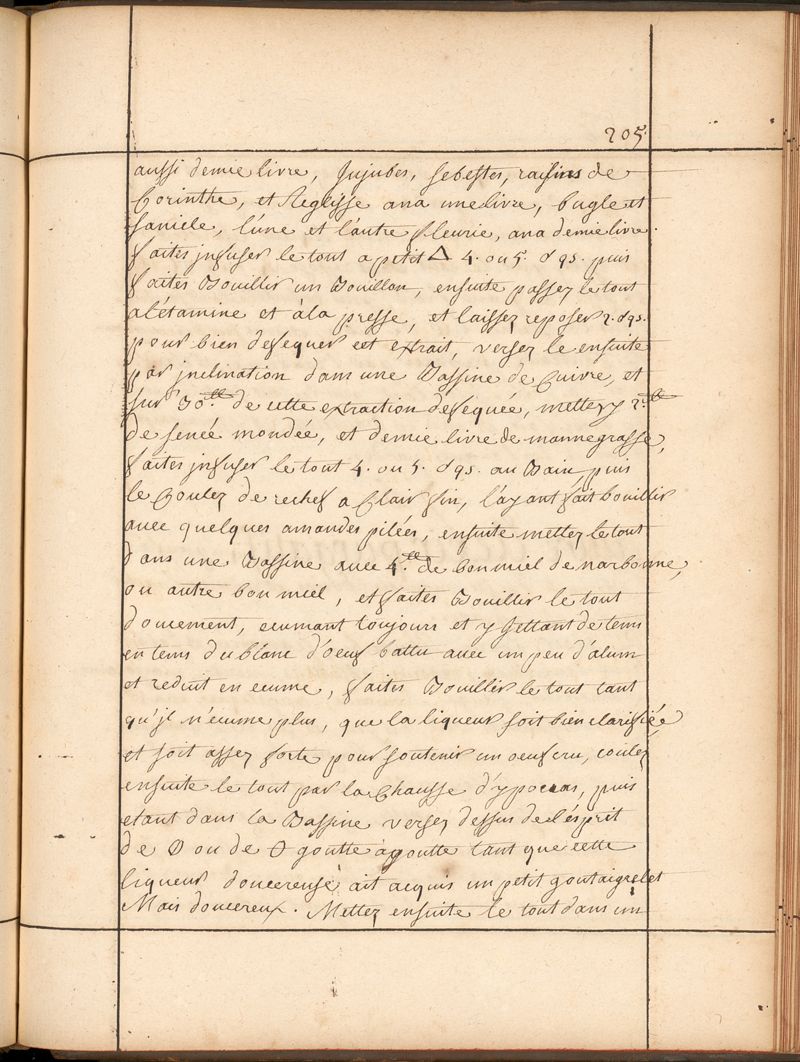 205.
aussi demie livre, Jujubes, sebestes, raisins de
Corinthe, et Reglisse ana une livre, bugle et
saniele, l'une et l'autre fleurie, ana demie livre.
faites jnfuser le tout a petit △ 4. ou 5. d gs. puis
faites Bouillir un Bouillon, ensuite passez le tout
al'étamine et àla presse, et laissez reposer 2. d gs.
pour bien defequer cet extrait, versez le ensuite
par jnclination dans une Bassine de Cuivre, et
sur 30.ll de cette extraction defequée, mettez y 2.ll
de senée mondée, et demie livre de manne grasse,
faites jnfuser le tout 4. ou 5. d gs. au Bain, puis
le Coulez derechef a Clair fin, l'ayant fait bouillir
avec quelques amandes pilées, ensuite mettez le tout
dans une Bassine avec 4.ll de bon miel de narbonne,
ou autre bon miel, et faites Bouillir le tout
doucement, ecumant toujours et y Jettant de tems
en tems du blanc d'oeuf battu avec un peu d'alum
et reduit en ecume, faites Bouillir le tout tant
qu'jl n'ecume plus, que la liqueur soit bien clarifiée
et soit assez forte pour soutenir un oeuf cru, coulez
ensuite le tout par la Chausse d'ypocras, puis
etant dans la Bassine versez dessus de l'ésprit
de ou de goutte àgoutte tant que cette
liqueur doucereuse ait acquis un petit gout aigrelet
Mais doucereux. Mettez ensuite le tout dans un